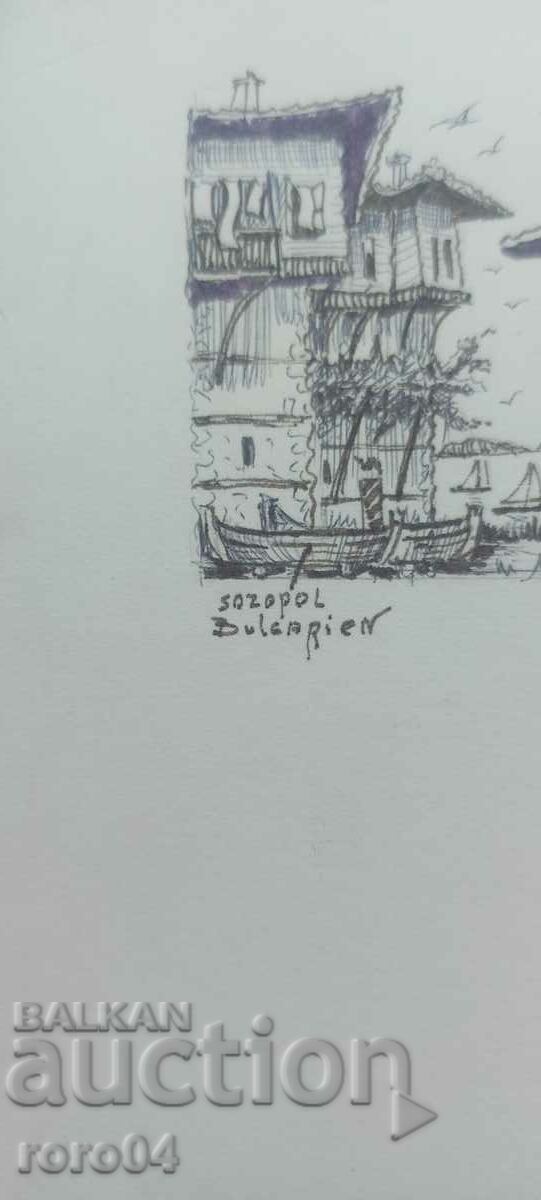 sozopol
Bulgarien
BALKAN
auction
roro04